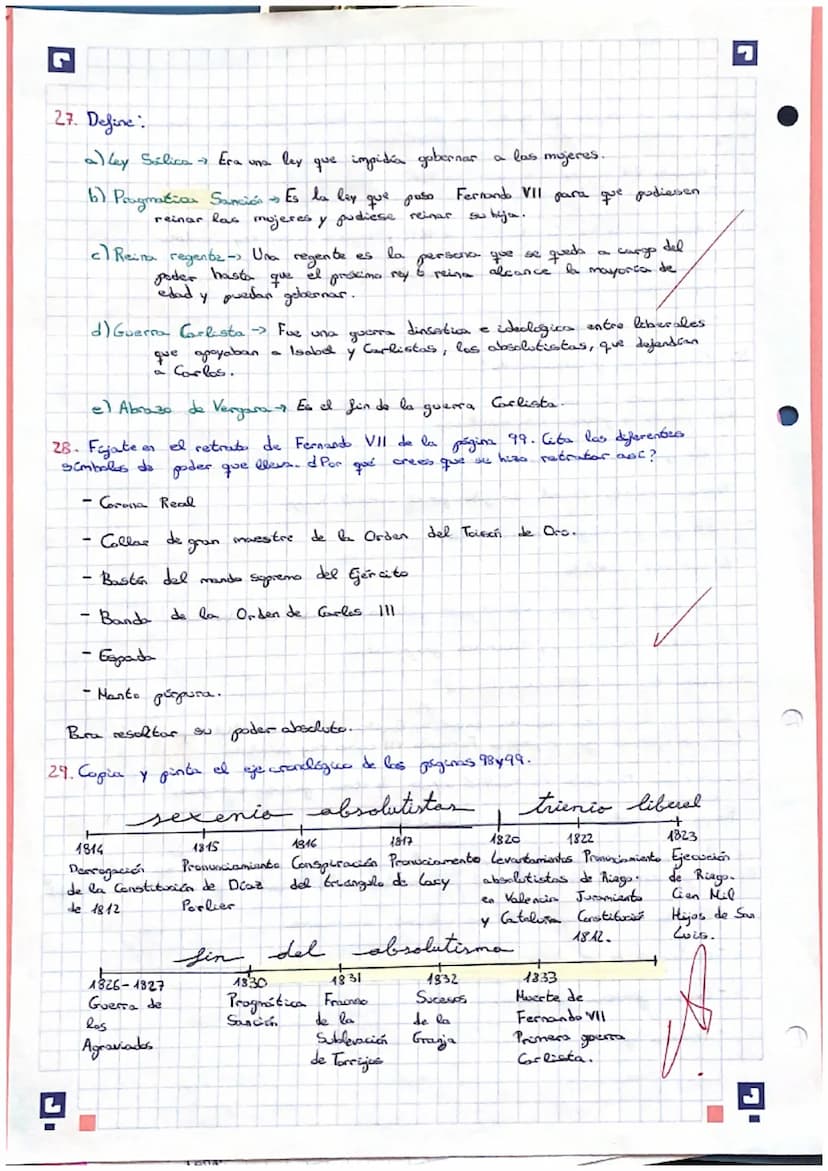 27. Define:
a) Ley Sálica → Era una ley que impidía gobernar a las mujeres.
b) Pragmatica Sanción → Es la ley que puso Fernando VII para que pudiesen
reinar las mujeres y pudiese reinar su hija.
c) Reina regente → Una regente es la persona que se queda a cargo del
poder hasta que el próximo rey ó reina alcance la mayoría de
edad y puedan gobernar.
d) Guerra Carlista → Fue una guerra dinsatica e ideologica entre liberales
que apoyaban a Isabel y Carlistas, los absolutistas, que defendían
a Carlos.
e) Abrazo de Vergara → Es el fin de la guerra Carlista.
28. Fíjate en el retrato de Fernando VII de la página 99. Cita los diferentes
símbolos de poder que lleva. ¿Por qué crees que se hizo retratar así?
- Corona Real
- Collar de gran maestre de la Orden del Toisón de Oro.
- Bastón del mando supremo del Ejército
- Banda de la Orden de Carlos III
- Espada
- Manto púrpura.
Para resaltar su poder absoluto.
29. Copia y pinta el eje cronológico de las páginas 98 y 99.
sexenio absolutistas trienio liberal
1814 1815 1816 1817 1820 1822 1823
Derrogación Pronunciamiento Conspiración Pronuciamento Levantamientos Pronunciamiento Ejecución
de la Constitución de Díaz del triangulo de Lacy absolutistas de Riago. de Riago.
de 1812 Porlier en Valencia Juramiento Cien Mil
y Cataluña Constitución Hijos de San
1812. Luis.
fin del absolutismo
1826-1827 1830 1831 1832 1833
Guerra de Pragmática Fracaso Sucesos Muerte de
los Sanción de la de la Fernando VII
Agraviados Sublevación Granja Primera guerra
de Torrijos Carlista.